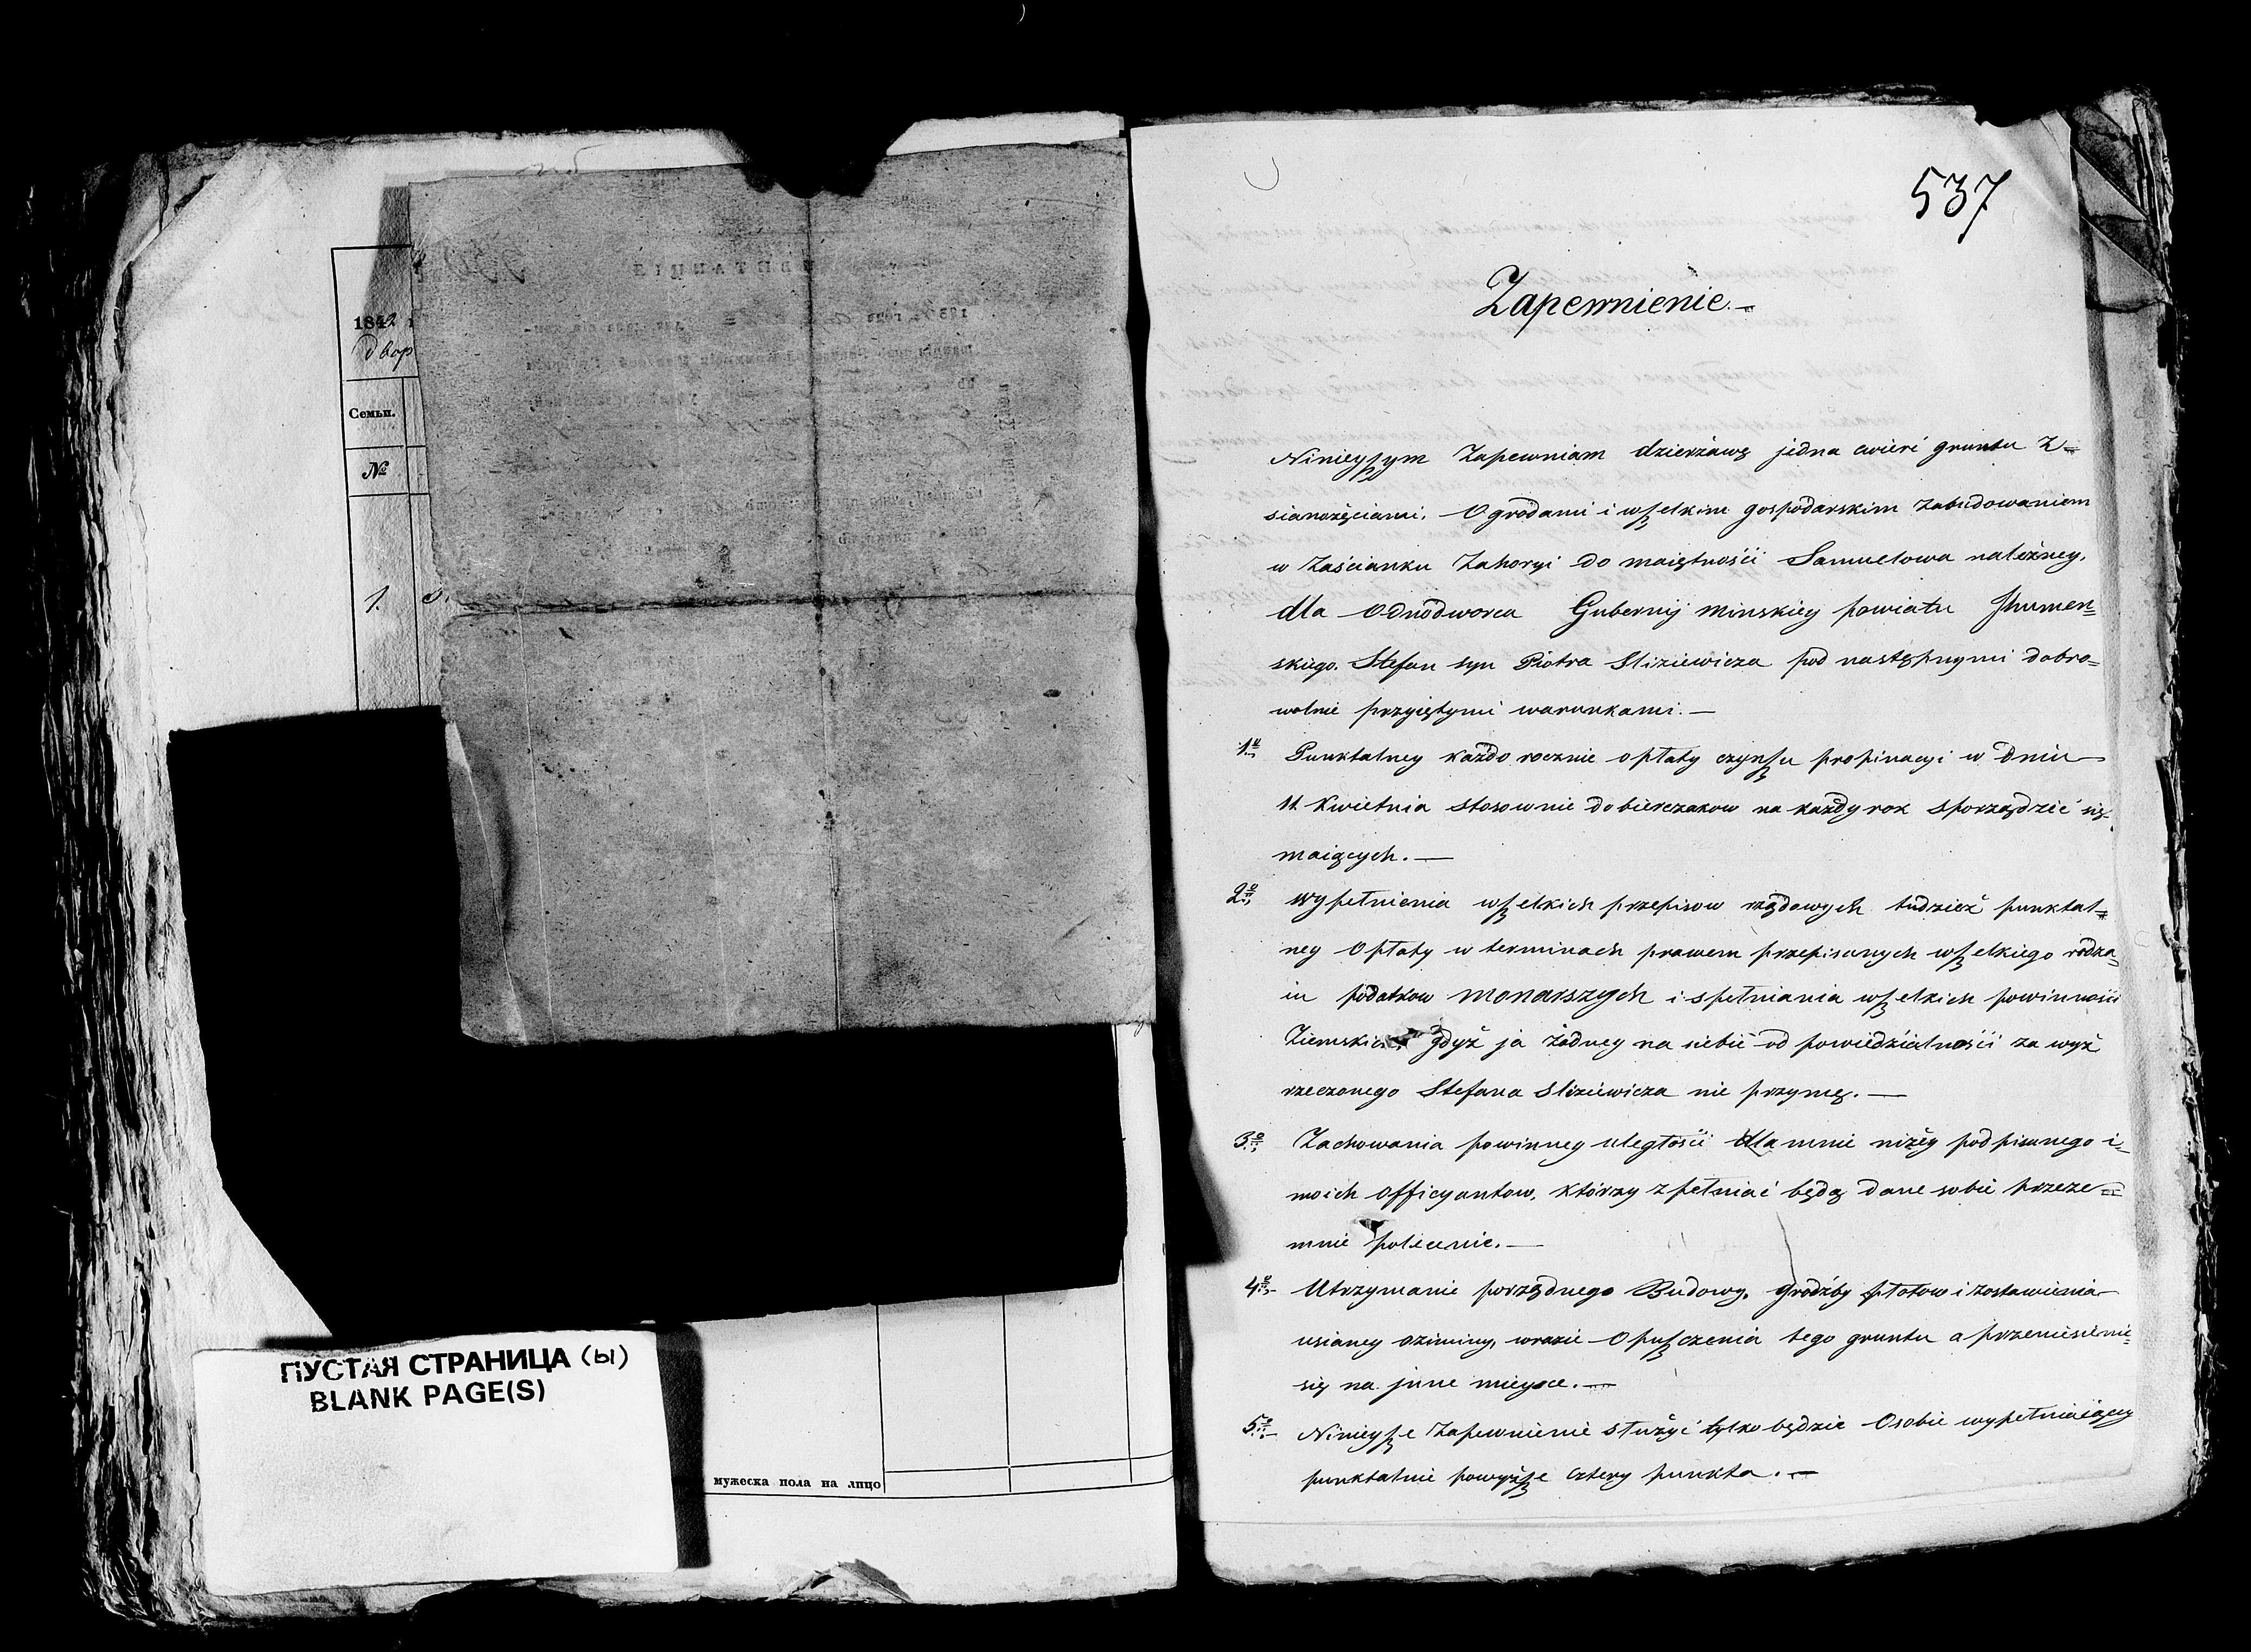 1842
двор
Семьи.
№
1.
ПУСТАЯ СТРАНИЦА (ы)
BLANK PAGE(S)
мужеска пола на лицо
537
Zapewnienie.—
Ninieyszym Zapewniam dzierżawę jedna cwierć gruntu Z=
sianożęciami, Ogrodami i wszelkim gospodarskim zabudowaniem
w Zaścianku Zahoryi do maiętnośći Samuelowa należney,
dla Odnodworca Gubernij Minskiey powiatu Jhumen=
skiego, Stefan syn Piotra Sliziewicza pod następnymi dobro=
wolnie przyiętymi warunkami.—
1o Punktalney każdo rocznie opłaty czynszu propinacyi w dniu
11 Kwietnia stosownie do bierczakow na każdy rok sporządzić się
maiących.—
2o wypełnienia wszelkich przepisow rządowych tudzież punktal=
ney Opłaty w terminach prawem przepisanych wszelkiego rodza=
iu podatkow monarszych i spełniania wszelkich powinnośći
Ziemskich gdyż ja żadney na siebie od powiedzialnośći za wyż
rzeczonego Stefana Sliziewicza nie przymę.—
3o Zachowania powinney uległośći dla mnie niżey podpisanego i=
moich officyantow, którzy zpełniać będą dane sobie przeze=
mnie polecenie.—
4o Utrzymanie porządnego Budowy, grodźby płotow i zostawienia
usianey oziminy, wrazie Opuszczenia tego gruntu a przeniesienie
się na jnne mieysce.—
5o Ninieysze Zapewnienie służyć tylko będzie Osobie wypełniaiącey
punktalnie powyższe cztery punkta.—